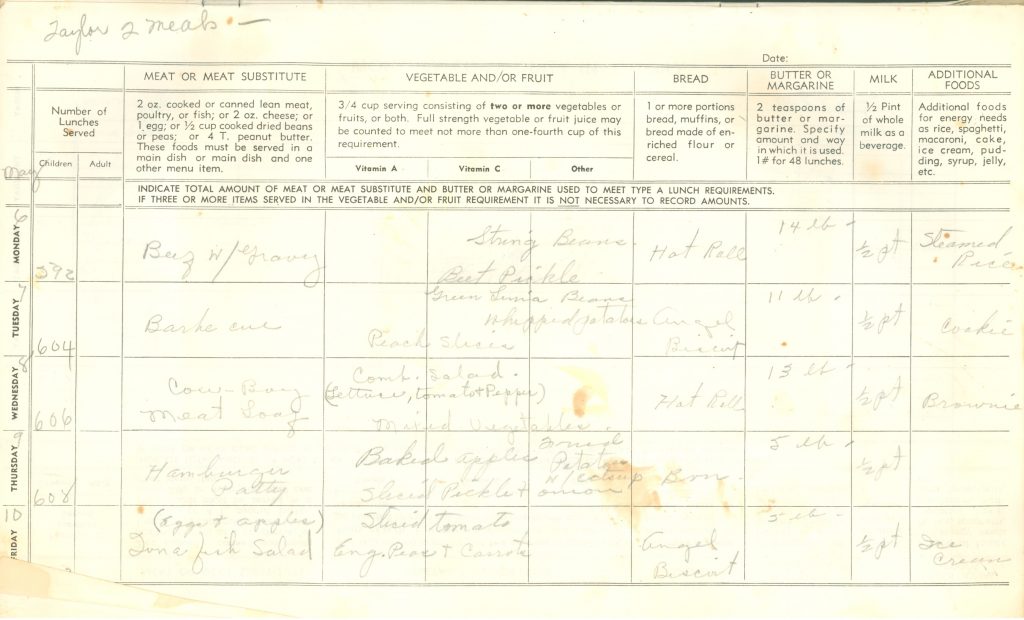 Taylor 2 Meals —
Date:
MEAT OR MEAT SUBSTITUTE
VEGETABLE AND/OR FRUIT
BREAD
BUTTER OR
MARGARINE
MILK
ADDITIONAL
FOODS
Number of
Lunches
Served
2 oz. cooked or canned lean meat,
poultry, or fish; or 2 oz. cheese; or
1 egg; or ½ cup cooked dried beans
or peas; or 4 T. peanut butter.
These foods must be served in a
main dish or main dish and one
other menu item.
3/4 cup serving consisting of two or more vegetables or
fruits, or both. Full strength vegetable or fruit juice may
be counted to meet not more than one-fourth cup of this
requirement.
1 or more portions
bread, muffins, or
bread made of en-
riched flour or
cereal.
2 teaspoons of
butter or mar-
garine. Specify
amount and way
in which it is used.
1# for 48 lunches.
½ Pint
of whole
milk as a
beverage.
Additional foods
for energy needs
as rice, spaghetti,
macaroni, cake,
ice cream, pud-
ding, syrup, jelly,
etc.
Children
Adult
Vitamin A
Vitamin C
Other
May
INDICATE TOTAL AMOUNT OF MEAT OR MEAT SUBSTITUTE AND BUTTER OR MARGARINE USED TO MEET TYPE A LUNCH REQUIREMENTS.
IF THREE OR MORE ITEMS SERVED IN THE VEGETABLE AND/OR FRUIT REQUIREMENT IT IS NOT NECESSARY TO RECORD AMOUNTS.
MONDAY 6
592
Beef w/Gravy
String Beans
Beet Pickle
Hot Roll
14 lb
½ pt
Steamed
Rice
TUESDAY 7
604
Barbe cue
Green Lima Beans
Whipped potatoes
Peach Slices
Angel
Biscuit
11 lb
½ pt
Cookie
WEDNESDAY 8
606
Cow-Boy
Meat Loaf
Comb. Salad
(Lettuce, tomato + Pepper)
Mixed Vegetables
Hot Roll
13 lb
½ pt
Brownie
THURSDAY 9
608
Hamburger
Patty
Baked apples
Sliced Pickle +
Potatoes
w/ catsup
onion
Bun
5 lb
½ pt
RIDAY 10
(Eggs + apples)
Tuna fish Salad
Sliced tomato
Eng. Peas + Carrots
Angel
Biscuit
5 lb
½ pt
Ice
Cream